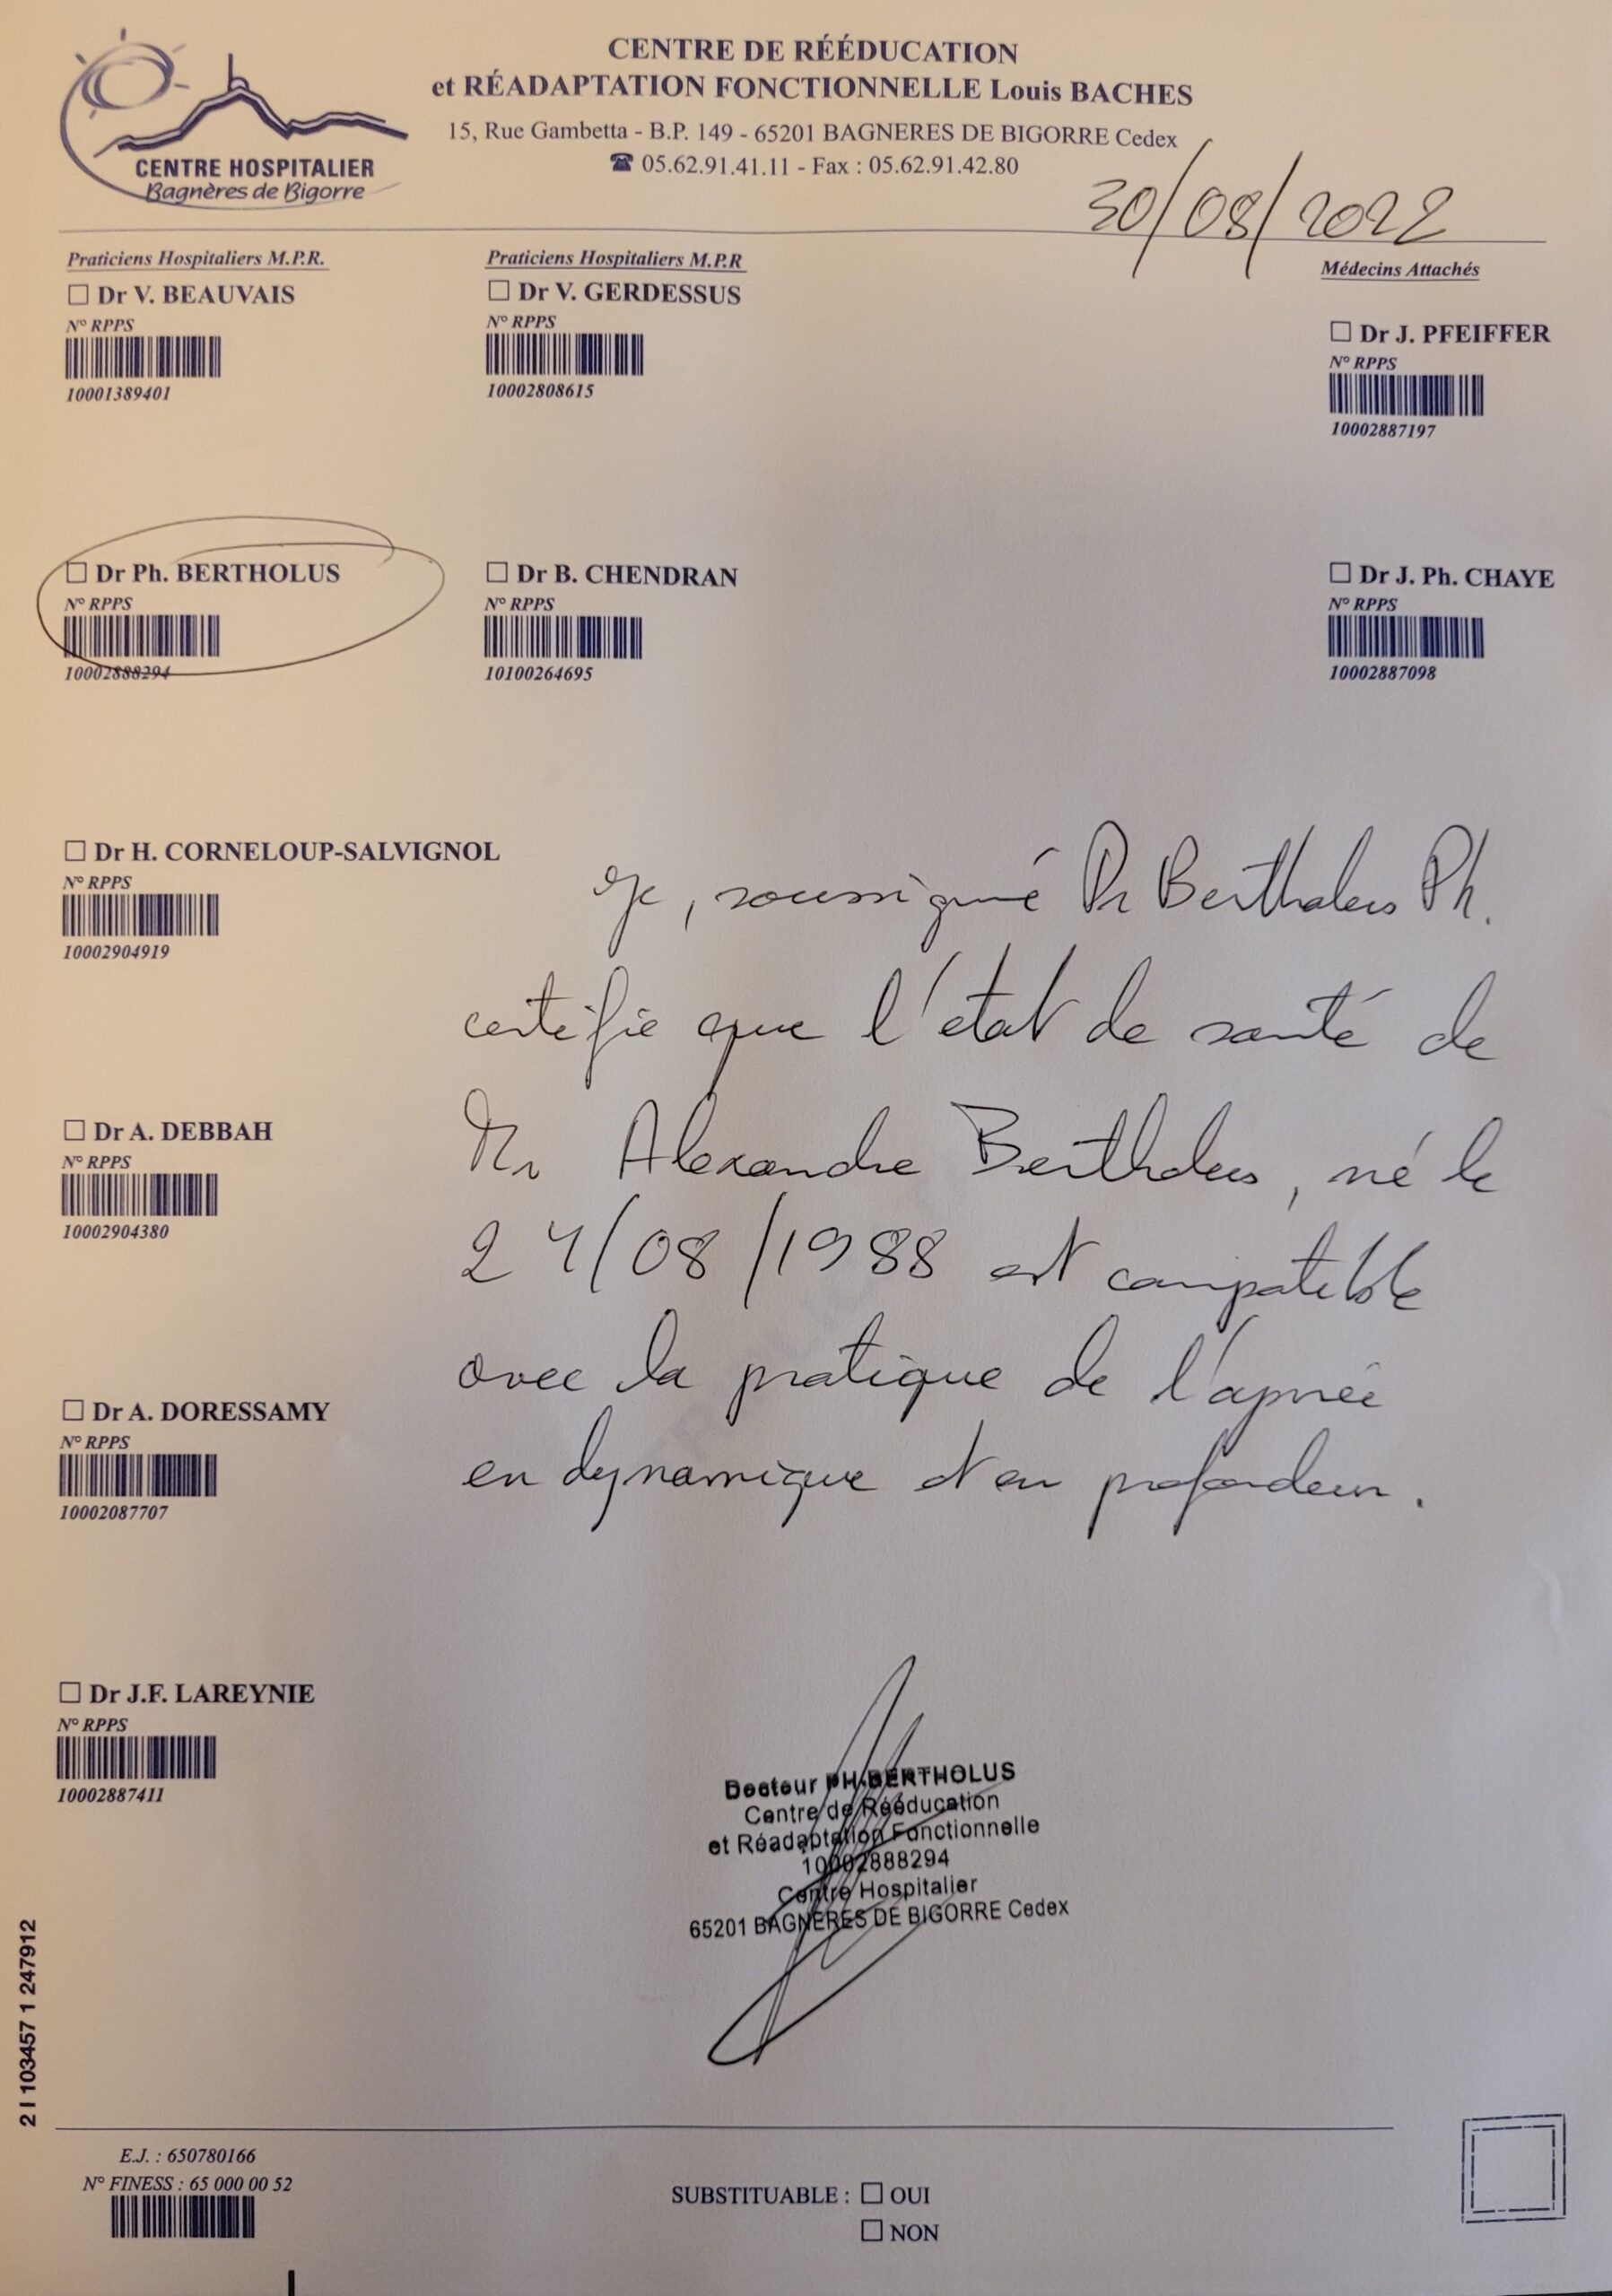 CENTRE DE RÉÉDUCATION
et RÉADAPTATION FONCTIONNELLE Louis BACHES
15, Rue Gambetta - B.P. 149 - 65201 BAGNERES DE BIGORRE Cedex
☎ 05.62.91.41.11 - Fax : 05.62.91.42.80
CENTRE HOSPITALIER
Bagnères de Bigorre
30/08/2022
Praticiens Hospitaliers M.P.R.
Dr V. BEAUVAIS
N° RPPS
10001389401
Praticiens Hospitaliers M.P.R
Dr V. GERDESSUS
N° RPPS
10002808615
Médecins Attachés
Dr J. PFEIFFER
N° RPPS
10002887197
Dr Ph. BERTHOLUS
N° RPPS
10002888294
Dr B. CHENDRAN
N° RPPS
10100264695
Dr J. Ph. CHAYE
N° RPPS
10002887098
Dr H. CORNELOUP-SALVIGNOL
N° RPPS
10002904919
Dr A. DEBBAH
N° RPPS
10002904380
Dr A. DORESSAMY
N° RPPS
10002087707
Dr J.F. LAREYNIE
N° RPPS
10002887411
Je, soussigné Dr Bertholus Ph.
certifie que l'état de santé de
Mr Alexandre Bertholus, né le
24/08/1988 est compatible
avec la pratique de l'apnée
en dynamique et en profondeur.
Docteur PH.BERTHOLUS
Centre de Rééducation
et Réadaptation Fonctionnelle
10002888294
Centre Hospitalier
65201 BAGNERES DE BIGORRE Cedex
21103457 1 247912
E.J. : 650780166
N° FINESS : 65 000 00 52
SUBSTITUABLE : OUI
NON